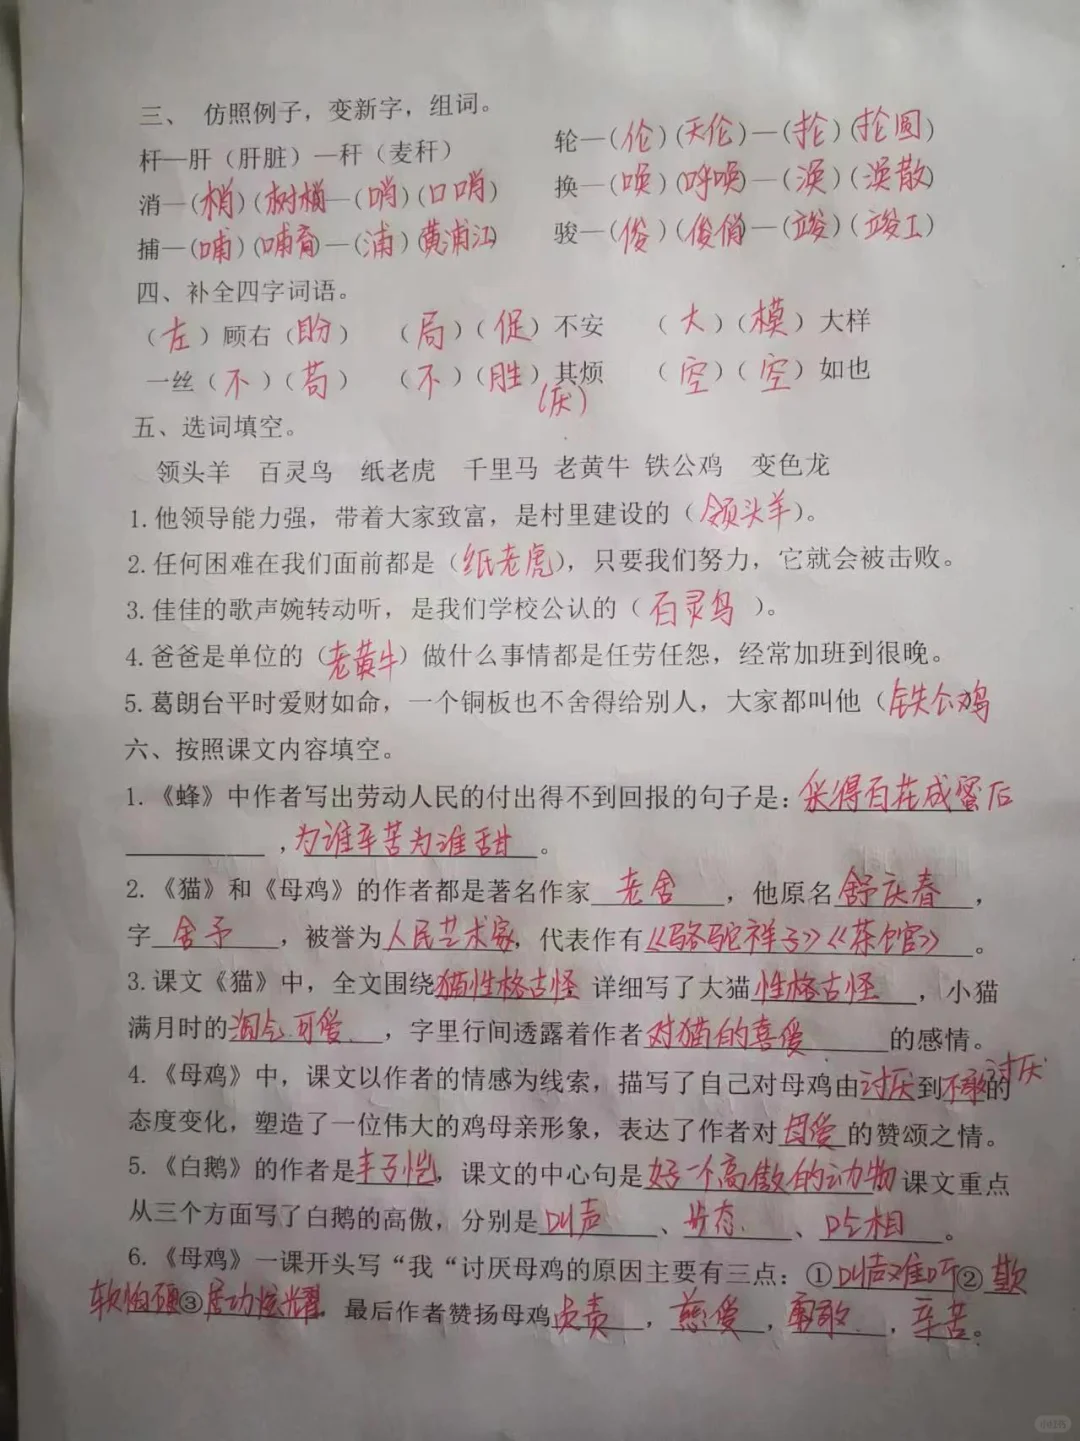 三、 仿照例子，变新字，组词。
杆—肝（肝脏）—秆（麦秆）
消—(梢)(树梢—(哨)(口哨)
捕—(哺)(哺育)—(浦)(黄浦江)
轮—(伦)(天伦)—(抡)(抡圆)
换—(唤)(呼唤)—(涣)(涣散)
骏—(俊)(俊俏)—(竣)(竣工)
四、补全四字词语。
（左）顾右（盼） （局）（促）不安 （大）（模）大样
一丝（不）（苟） （不）（胜）其烦 （空）（空）如也
(厌)
五、选词填空。
领头羊 百灵鸟 纸老虎 千里马 老黄牛 铁公鸡 变色龙
1.他领导能力强，带着大家致富，是村里建设的（领头羊）。
2.任何困难在我们面前都是（纸老虎），只要我们努力，它就会被击败。
3.佳佳的歌声婉转动听，是我们学校公认的（百灵鸟 ）。
4.爸爸是单位的（老黄牛）做什么事情都是任劳任怨，经常加班到很晚。
5.葛朗台平时爱财如命，一个铜板也不舍得给别人，大家都叫他（铁公鸡
六、按照课文内容填空。
1.《蜂》中作者写出劳动人民的付出得不到回报的句子是：采得百花成蜜后
，为谁辛苦为谁甜。
2.《猫》和《母鸡》的作者都是著名作家 老舍 ，他原名 舒庆春 ，
字 舍予 ，被誉为人民艺术家，代表作有《骆驼祥子》《茶馆》 。
3.课文《猫》中，全文围绕猫性格古怪 详细写了大猫性格古怪 ，小猫
满月时的淘气可爱 ，字里行间透露着作者对猫的喜爱 的感情。
4.《母鸡》中，课文以作者的情感为线索，描写了自己对母鸡由讨厌到不敢讨厌的
态度变化，塑造了一位伟大的鸡母亲形象，表达了作者对 母爱 的赞颂之情。
5.《白鹅》的作者是丰子恺，课文的中心句是好一个高傲的动物 课文重点
从三个方面写了白鹅的高傲，分别是叫声 、步态 、吃相 。
6.《母鸡》一课开头写“我“讨厌母鸡的原因主要有三点：①叫声难听②欺
软怕硬③居功炫耀 最后作者赞扬母鸡负责，慈爱，勇敢，辛苦。
小红书